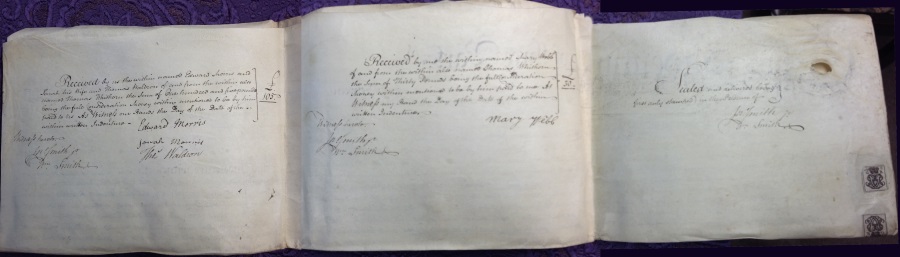 Received by us the within named Edward Morris and
Sarah his Wife and Thomas Waldron of and from the within also
named Thomas the Sum of One hundred and five pounds
being the full Consideration Money within mentioned to be by him
paid to us As Witness our Hands the Day of the Date of the
within written Indenture
£
105
Edward Morris
Sarah Morris
Thos Waldron
Witness hereto
Jos Smith Jr
Wm Smith
Received by me the within named Mary Webb
of and from the within also named Thomas
the Sum of Thirty Pounds being the full Consideration
Money within mentioned to be by him paid to me As
Witness my Hand the Day of the Date of the within
written Indenture
£
30
Mary Webb
Witness hereto
Jos Smith Jr
Wm Smith
Sealed and delivered being
first duly stamped in the Presence of
Jos Smith
Wm Smith